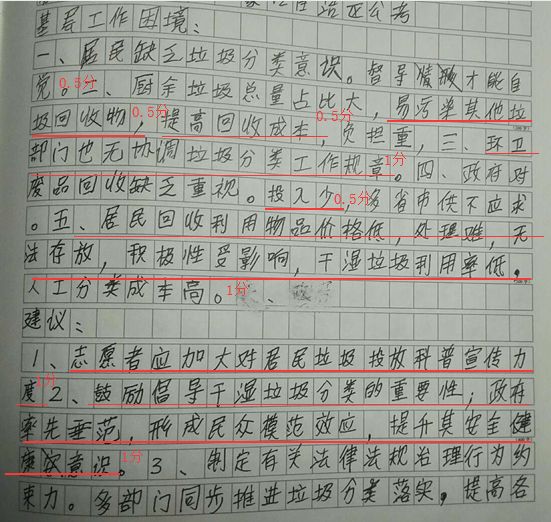 基层工作困境：
一、居民缺乏垃圾分类意识。督导情顾才能自
觉。二、厨余垃圾总量占比大，易污染其他垃
0.5分
圾回收物，提高回收成本，负担重，三、环卫
0.5分
0.5分
部门也无协调垃圾分类工作规章。四、政府对
1分
废品回收缺乏重视。投入少，多省市供不应求
0.5分
。五、居民回收利用物品价格低，处理难，无
法存放，积极性受影响，干湿垃圾利用率低，
人工分类成本高。
1分
建议：
1、志愿者应加大对居民垃圾投放科普宣传力
度2、鼓励倡导干湿垃圾分类的重要性；政府
1分
率先垂范，形成民众模范效应，提升其安全健
康意识。3、制定有关法律法规治理行为约
1分
束力。多部门同步推进垃圾分类落实，提高各